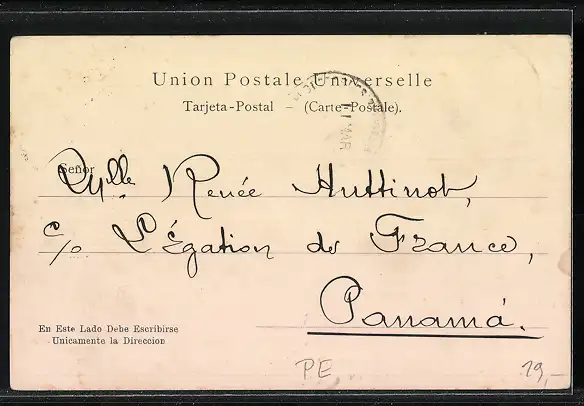 Union Postale Universelle
Tarjeta-Postal – (Carte-Postale).
11 MAR
Señor
Mlle Renée Huttinot,
c/o Légation de France,
Panamá.
En Este Lado Debe Escribirse
Unicamente la Direccion
PE, 29,-